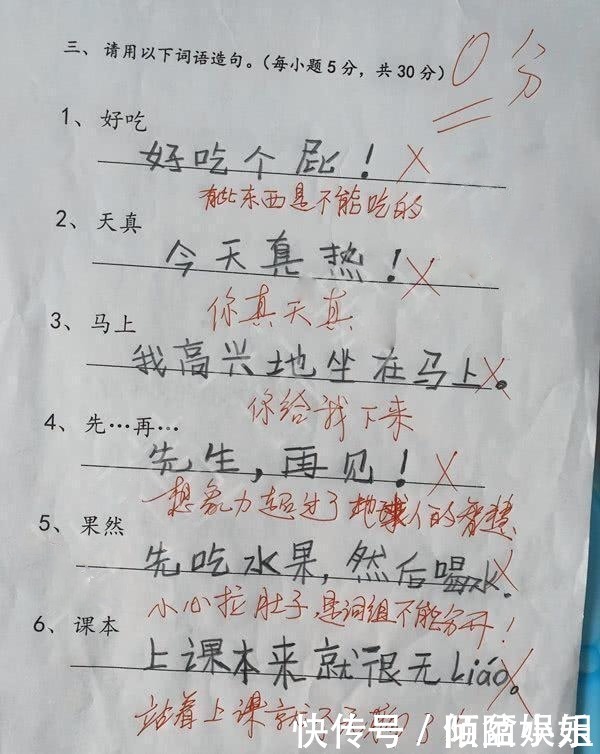 三、请用以下词语造句。(每小题5分，共30分)
0分
1、好吃
好吃个屁！
有些东西是不能吃的
2、天真
今天真热！
你真天真
3、马上
我高兴地坐在马上。
你给我下来
4、先…再…
先生，再见！
想象力超过了地球人的智慧
5、果然
先吃水果，然后喝水.
小心拉肚子，是词组不能分开！
6、课本
上课本来就很无Liáo。
站着上课就不无聊了
快传号／倾蓝娱乐